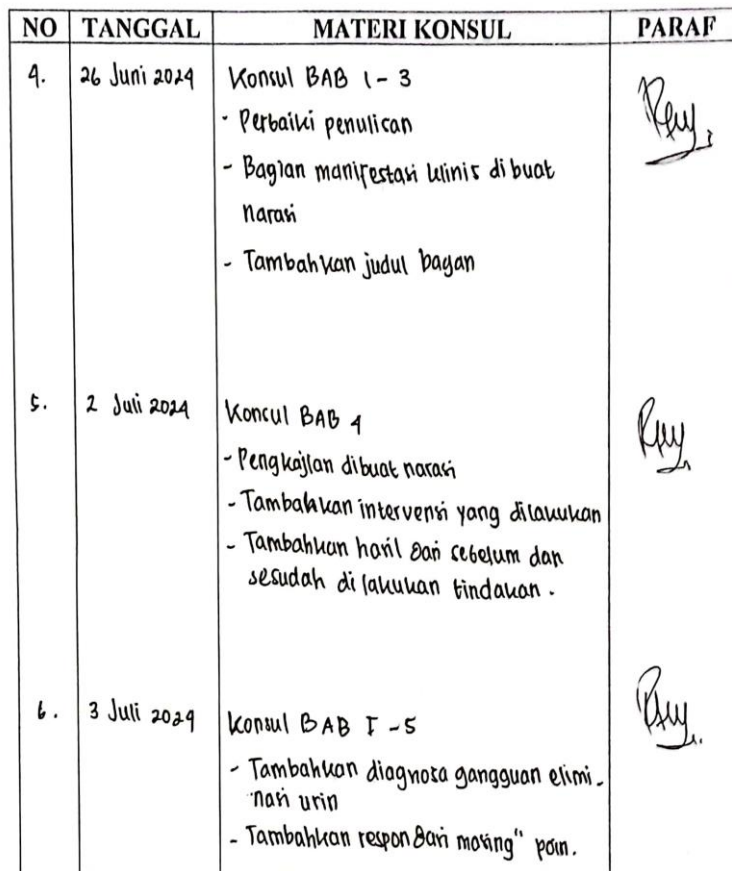 NO TANGGAL MATERI KONSUL PARAF
4. 26 Juni 2024 Konsul BAB 1 - 3
- Perbaiki penulisan
- Bagian manifestasi klinis dibuat
narasi
- Tambahkan judul bagan
5. 2 Juli 2024 Konsul BAB 4
- Pengkajian dibuat narasi
- Tambahkan intervensi yang dilakukan
- Tambahkan hasil dari sebelum dan
sesudah dilakukan tindakan.
6. 3 Juli 2024 Konsul BAB I - 5
- Tambahkan diagnosa gangguan elimi-
nasi urin
- Tambahkan respon dari masing" poin.